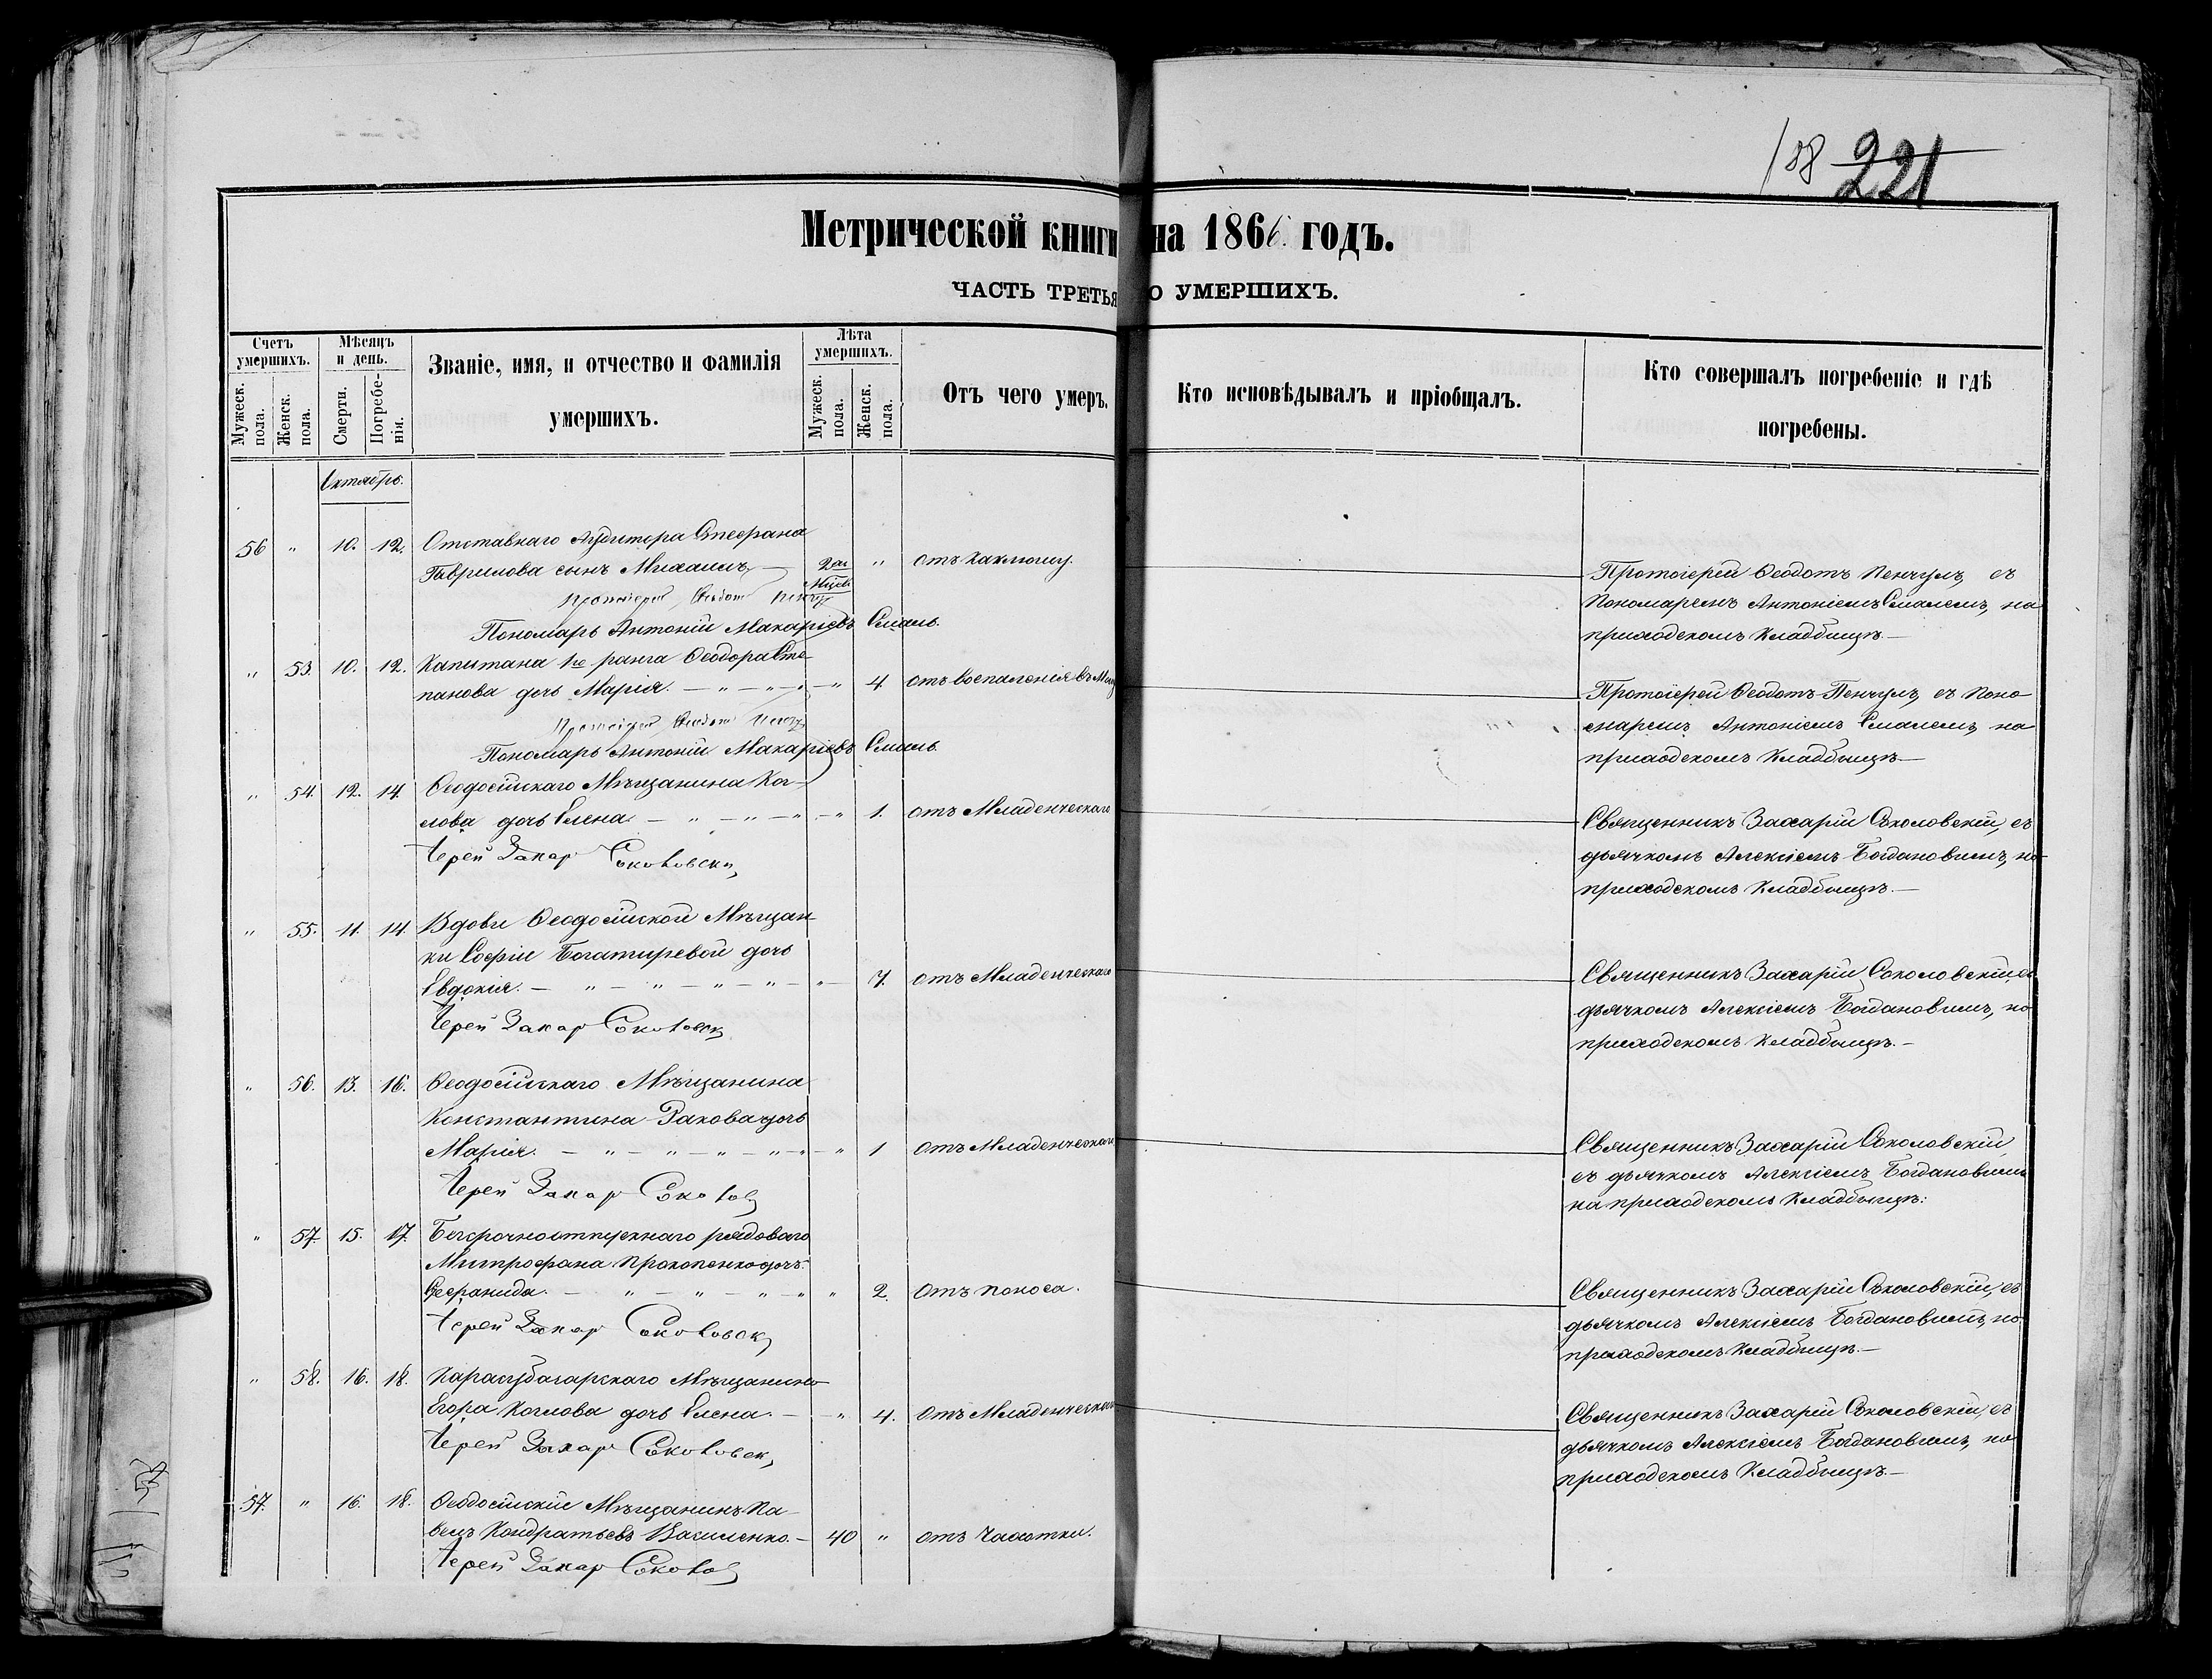 138 221
Метрической книги на 1866. годъ.
ЧАСТЬ ТРЕТЬЯ О УМЕРШИХЪ.
Счетъ умершихъ. Мѣсяцъ и день. Званіе, имя, и отчество и фамилія умершихъ. Лѣта умершихъ. Отъ чего умеръ. Кто исповѣдывалъ и пріобщалъ. Кто совершалъ погребеніе и гдѣ погребены.
Мужеск. пола. Женск. пола. Смерти. Погребенія. Мужеск. пола. Женск. пола.
Октябрь.
56 " 10. 12. Отставнаго Аудитора Стефана
Гаврилова сынъ Михаилъ, — 2 " отъ Каклюшу.
Протоіерей Ѳеодотъ Пенчул, съ
Пономаремъ Антоніемъ Смалемъ, на
приходскомъ Кладбищѣ. —
Протоіерей Ѳеодот
Пономарь Антоній Макаріевъ Смаль.
" 53. 10. 12. Капитана 1го ранга Ѳеодора Сте-
панова дочь Марія. — " — " — " 4. отъ воспаленія въ
Протоіерей Ѳеодотъ Пенчул, съ Поно-
маремъ Антоніемъ Смалемъ, на
приходскомъ Кладбищѣ —
Протоіерей Ѳеодот
Пономарь Антоній Макаріевъ Смаль.
" 54. 12. 14. Ѳеодосійскаго Мѣщанина Коз-
лова дочь Елена. — " — " — " — " 1. отъ Младенческаго
Священникъ Захарій Соколовскій, съ
дьячкомъ Алексіемъ Богдановымъ, на
приходскомъ Кладбищѣ. —
Іерей Захар Соколовски
" 55. 11. 14. Вдовы Ѳеодосійской Мѣщан-
ки Софіи Богатыревой дочь
Евдокія. — " — " — " — " — " — 7. отъ Младенческаго
Священникъ Захарій Соколовскій, съ
дьячкомъ Алексіемъ Богдановымъ, на
приходскомъ Кладбищѣ. —
Іерей Захар Соколовск
" 56. 13. 16. Ѳеодосійскаго Мѣщанина
Константина Ракова дочь
Марія. — " — " — " — " — " 1 отъ Младенческаго
Священникъ Захарій Соколовскій,
съ дьячкомъ Алексіемъ Богдановымъ
на приходскомъ Кладбищѣ:
Іерей Захар Соколов
" 57. 15. 17. Безсрочноотпускнаго рядоваго
Митрофана Прокопенко дочь
— " — " — " — " " 2. Отъ поноса.
Священникъ Захарій Соколовскій, съ
дьячкомъ Алексіемъ Богдановымъ, на
приходскомъ Кладбищѣ. —
Іерей Захар Соколовск
" 58. 16. 18. Карасубазарскаго Мѣщанина
Егора Козлова дочь Елена. — " 4. Отъ Младенческаго
Священникъ Захарій Соколовскій, съ
дьячкомъ Алексіемъ Богдановымъ, на
приходскомъ Кладбищѣ. —
Іерей Захар Соколовск
57. " 16. 18. Ѳеодосійскій Мѣщанинъ Па-
велъ Кондратьевъ Василенко. — 40 " отъ Чахотки.
Іерей Захар Соколов